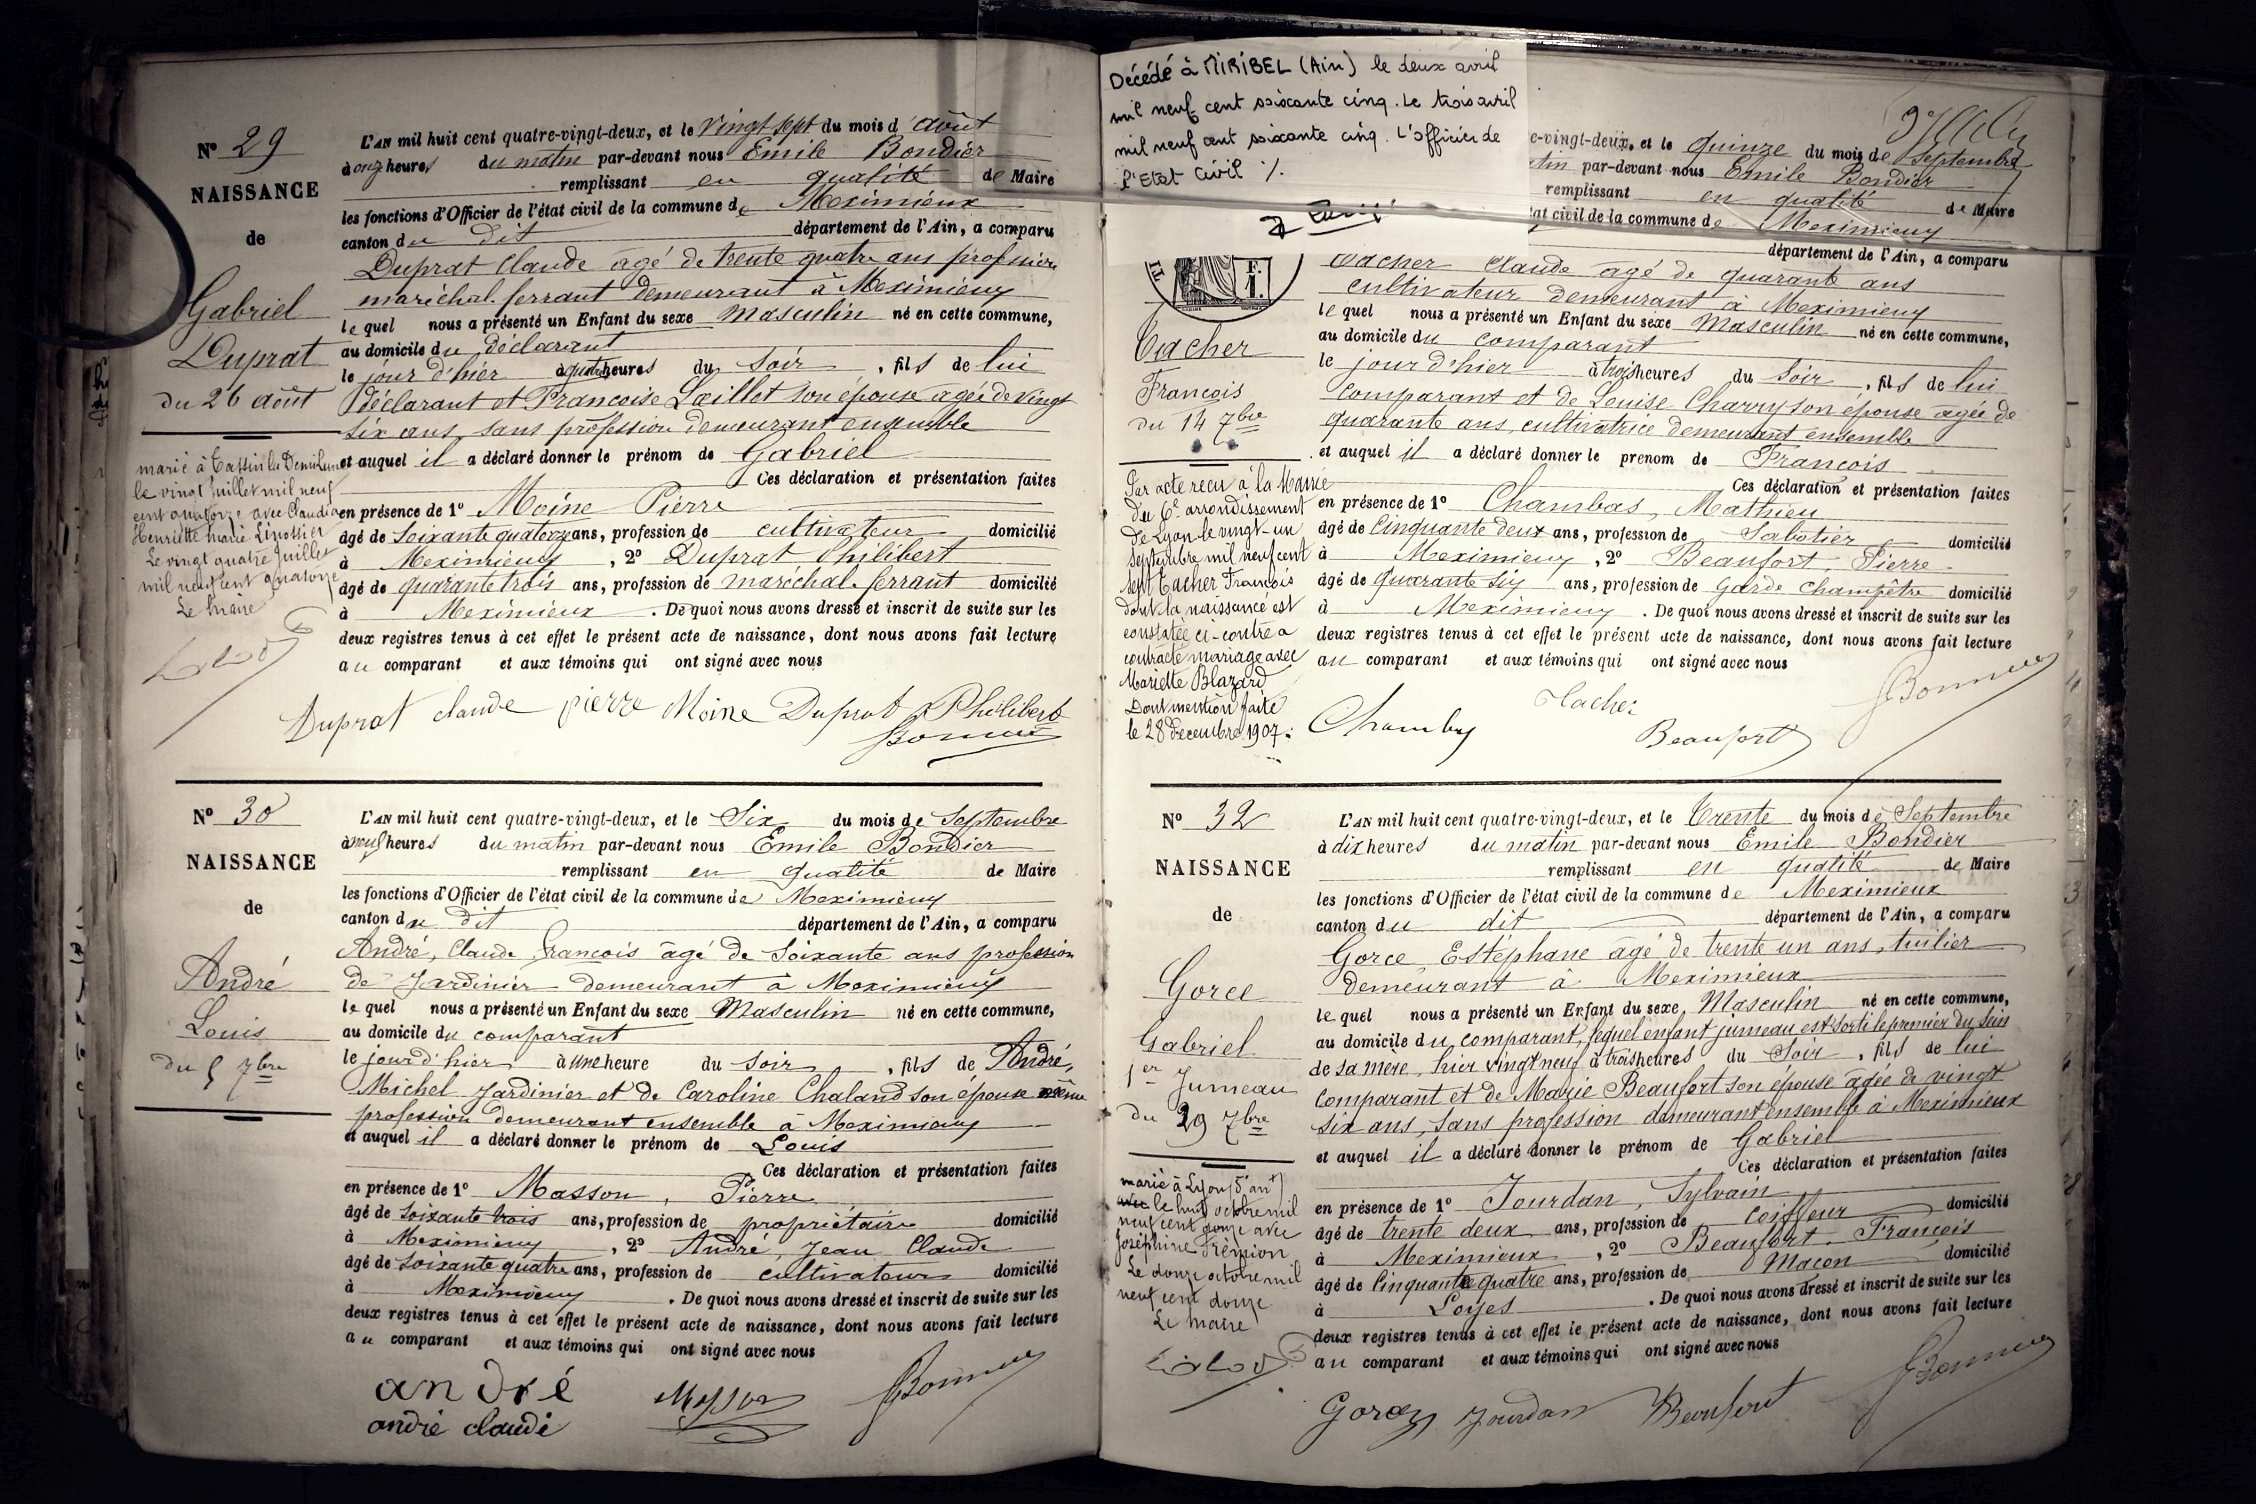 N° 29
NAISSANCE
de
Gabriel
Duprat
du 26 août
marié à Tassin la Demi-Lune
le vingt Juillet mil neuf
cent quatorze avec Claudia
Henriette Marie Linossier
Le vingt quatre Juillet
mil neuf cent quatorze
Le Maire
L'AN mil huit cent quatre-vingt-deux, et le vingt sept du mois d'août
à onze heures du matin par-devant nous Emile Bondier
remplissant en qualité de Maire
les fonctions d'Officier de l'état civil de la commune de Meximieux
canton du dit département de l'Ain, a comparu
Duprat Claude agé de trente quatre ans profession
maréchal-ferrant demeurant à Meximieux
lequel nous a présenté un Enfant du sexe Masculin né en cette commune,
au domicile du déclarant
le jour d'hier à quatre heures du soir, fils de lui
déclarant et Françoise Laillet son épouse agée de vingt
six ans, sans profession demeurant ensemble
et auquel il a déclaré donner le prénom de Gabriel
Ces déclaration et présentation faites
en présence de 1° Moine Pierre
âgé de soixante quatorze ans, profession de cultivateur domicilié
à Meximieux, 2° Duprat Philibert
âgé de quarante trois ans, profession de maréchal-ferrant domicilié
à Meximieux. De quoi nous avons dressé et inscrit de suite sur les
deux registres tenus à cet effet le présent acte de naissance, dont nous avons fait lecture
au comparant et aux témoins qui ont signé avec nous
Duprat claude pierre Moine Duprat Philibert
N° 30
NAISSANCE
de
André
Louis
du 5 7bre
L'AN mil huit cent quatre-vingt-deux, et le Six du mois de Septembre
à neuf heures du matin par-devant nous Emile Bondier
remplissant en qualité de Maire
les fonctions d'Officier de l'état civil de la commune de Meximieux
canton du dit département de l'Ain, a comparu
André, Claude François âgé de Soixante ans profession
de Jardinier demeurant à Meximieux
lequel nous a présenté un Enfant du sexe Masculin né en cette commune,
au domicile du comparant
le jour d'hier à une heure du soir, fils de André,
Michel Jardinier et de Caroline Chaland son épouse même
profession demeurant ensemble à Meximieux
et auquel il a déclaré donner le prénom de Louis
Ces déclaration et présentation faites
en présence de 1° Masson, Pierre
âgé de soixante trois ans, profession de propriétaire domicilié
à Meximieux, 2° André, Jean Claude
âgé de soixante quatre ans, profession de cultivateur domicilié
à Meximieux. De quoi nous avons dressé et inscrit de suite sur les
deux registres tenus à cet effet le présent acte de naissance, dont nous avons fait lecture
au comparant et aux témoins qui ont signé avec nous
andré
andré claude
Masson
Décédé à MIRIBEL (Ain) le deux avril
mil neuf cent soixante cinq. Le trois avril
mil neuf cent soixante cinq. L'officier de
l'Etat Civil %.
F.
Vacher
François
du 14 7bre
Par acte reçu à la Mairie
du 6e arrondissement
de Lyon le vingt-un
septembre mil neuf cent
sept Vacher François
dont la naissance est
constatée ci-contre a
contracté mariage avec
Mariette Blazard
Dont mention faite
le 28 décembre 1907.
e-vingt-deux, et le quinze du mois de Septembre
atin par-devant nous Emile Bondier
remplissant en qualité de Maire
tat civil de la commune de Meximieux
département de l'Ain, a comparu
Vacher Claude agé de quarante ans
cultivateur demeurant à Meximieux
lequel nous a présenté un Enfant du sexe Masculin né en cette commune,
au domicile du comparant
le jour d'hier à trois heures du soir, fils de lui
comparant et de Louise Charry son épouse agée de
quarante ans, cultivatrice demeurant ensemble
et auquel il a déclaré donner le prenom de François
Ces déclaration et présentation faites
en présence de 1° Chambas, Mathieu
âgé de Cinquante deux ans, profession de Sabotier domicilié
à Meximieux, 2° Beaufort, Pierre
âgé de quarante six ans, profession de Garde Champêtre domicilié
à Meximieux. De quoi nous avons dressé et inscrit de suite sur les
deux registres tenus à cet effet le présent acte de naissance, dont nous avons fait lecture
au comparant et aux témoins qui ont signé avec nous
Vacher
Beaufort
N° 32
NAISSANCE
de
Gorce
Gabriel
1er Jumeau
du 29 7bre
marié à Lyon (5e art)
avec le huit octobre mil
neuf cent douze avec
Joséphine Frémion
Le douze octobre mil
neuf cent douze
Le Maire
L'AN mil huit cent quatre-vingt-deux, et le Trente du mois de Septembre
à dix heures du matin par-devant nous Emile Bondier
remplissant en qualité de Maire
les fonctions d'Officier de l'état civil de la commune de Meximieux
canton du dit département de l'Ain, a comparu
Gorce, Estéphane âgé de trente un ans, tuilier
demeurant à Meximieux
lequel nous a présenté un Enfant du sexe Masculin né en cette commune,
au domicile du comparant, lequel enfant jumeau est sorti le premier du sein
de sa mère, hier vingt neuf à trois heures du Soir, fils de lui
comparant et de Marie Beaufort son épouse âgée de vingt
six ans, sans profession demeurant ensemble à Meximieux
et auquel il a déclaré donner le prénom de Gabriel
Ces déclaration et présentation faites
en présence de 1° Jourdan, Sylvain
âgé de trente deux ans, profession de coiffeur domicilié
à Meximieux, 2° Beaufort, François
âgé de Cinquante quatre ans, profession de Maçon domicilié
à Loyes. De quoi nous avons dressé et inscrit de suite sur les
deux registres tenus à cet effet le présent acte de naissance, dont nous avons fait lecture
au comparant et aux témoins qui ont signé avec nous
Jourdan Beaufort